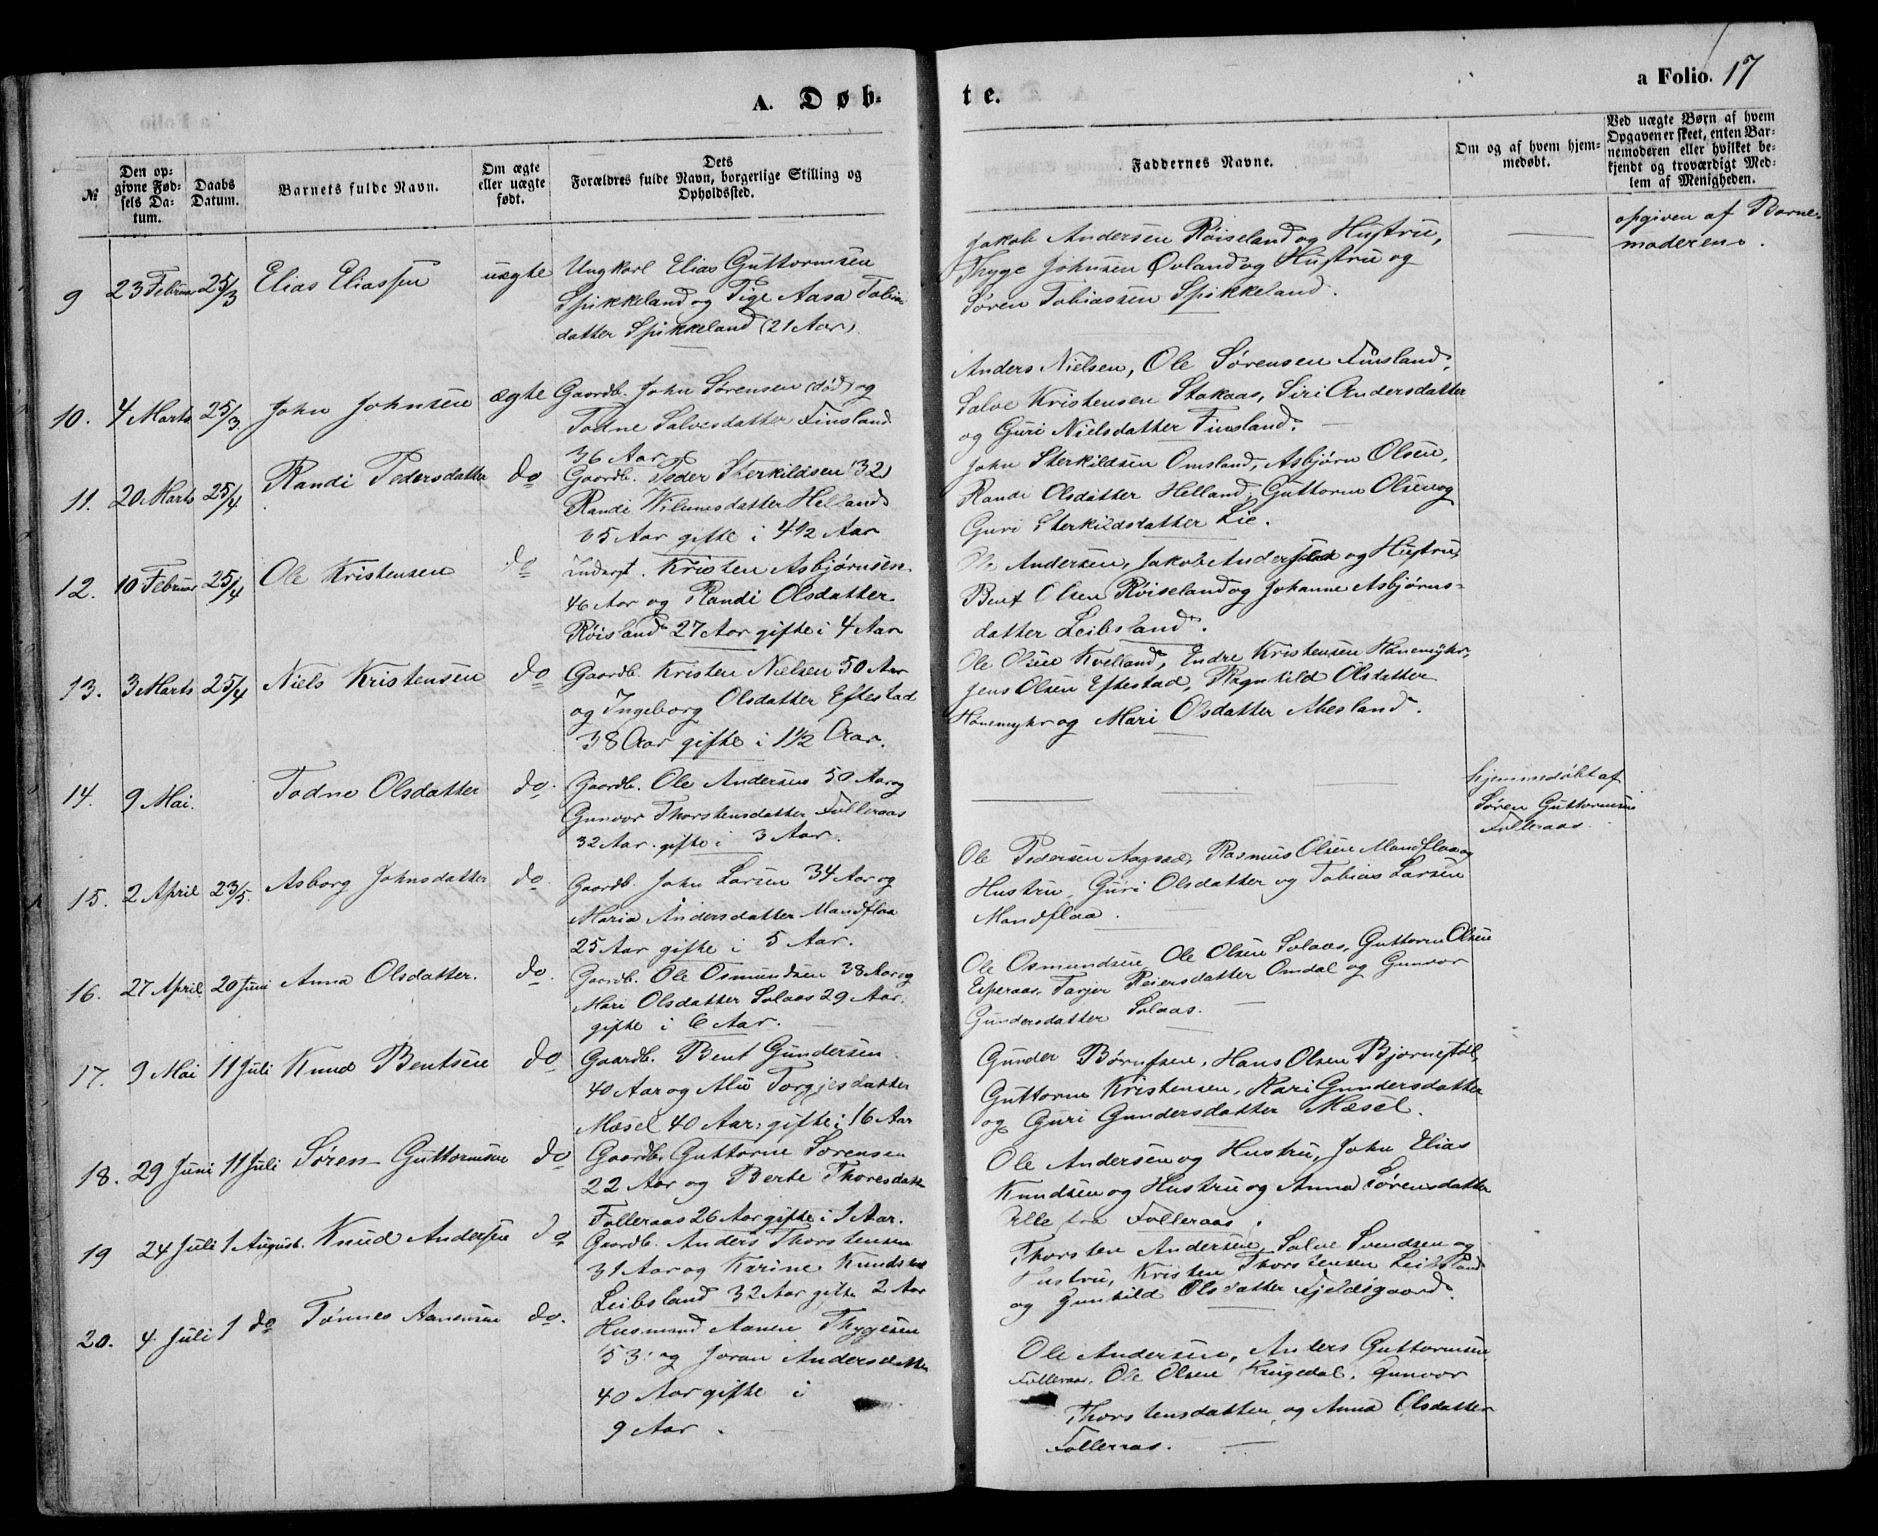 A. Døb-
№
Den op-
givne Fød-
sels Da-
tum.
Daabs
Datum.
Barnets fulde Navn.
Om ægte
eller uægte
født.
Dets
Forældres fulde Navn, borgerlige Stilling og
Opholdssted.
9 23 Februar 25/3 Elias Eliassen uægte Ungkarl Elias Guttormsen
Spikkeland og Pige Aasa Tobias
datter Spikkeland (21 Aar)
10. 4 Marts 25/3. John Johnsen ægte Gaardb. John Sørensen (død) og
Todne Salvesdatter Finsland
36 Aar
11. 20 Marts 25/4 Randi Pedersdatter do Gaardb. Peder Sterkildsen (32)
Randi Helland
Aar gifte i 4 1/2 Aar
12. 10 Februar 25/4 Ole Kristensen do Inderst. Kristen Asbjørnsen
46 Aar og Randi Olsdatter
Røisland 27 Aar gifte i 4 Aar
13. 3 Marts 25/4 Niels Kristensen do Gaardb. Kristen Nielsen 50 Aar
og Ingeborg Olsdatter Eftestad
38 Aar gifte i 1 1/2 Aar.
14. 9 Mai. Todne Olsdatter do. Gaardb. Ole Andersen 50 Aar og
Gunvor Thorstensdatter Folleraas
32 Aar. gifte i 3 Aar.
15. 2 April 23/5. Asborg Johnsdatter do. Gaardb. John Larsen 34 Aar og
Maria Andersdatter Mandflaa
25 Aar gifte i 5 Aar.
16. 27 April 20 Juni Anna Olsdatter. do. Gaardb. Ole Osmundsen 38 Aar og
Mari Olsdatter Solaas 29 Aar.
gifte i 6 Aar.
17. 9 Mai 11 Juli Knud Bentsen do Gaardb. Bent Gundersen
40 Aar og Torgjesdatter
Mæsel 40 Aar, gifte i 16 Aar
18. 29 Juni 11 Juli Søren Guttormsen do Gaardb. Guttorm Sørensen
22 Aar og Berte Thoresdatter
Folleraas 26 Aar gifte i 1 Aar.
19 24 Juli 1 August. Knud Andersen do Gaardb. Anders Thorstensen
31 Aar og Karine Knudsd
Leibsland 32 Aar gifte 2 Aar
20. 4 Juli 1 do Tønnes Aanensen do. Husmand Aanen Thygesen
53 og Joran Andersdatter
40 Aar gifte i
9 Aar.
te. a Folio. 17
Faddernes Navne.
Om og af hvem hjem-
medøbt.
Ved uægte Børn af hvem
Opgaven er skeet, enten Bar-
nemoderen eller hvilket be-
kjendt og troværdigt Med-
lem af Menigheden.
Jakob Andersen Røiseland og Hustru, opgiven af Barne-
Thyge Johnsen Øvland og Hustru og moderen.
Søren Tobiassen Spikkeland.
Anders Nielsen, Ole Sørensen Finsland,
Salve Kristensen Stakaas, Siri Andersdatter
og Guri Nielsdatter Finsland.
John Sterkildsen Omsland, Asbjørn Olsen,
Randi Olsdatter Helland, Guttorm Olsen og
Guri Sterkildsdatter Lie.
Ole Andersen, Jakob Andersen og Hustru,
Bent Olsen Røiseland og Johanne Asbjørns-
datter Leibsland.
Ole Olsen Kvelland, Endre Kristensen Hønemyhr,
Jens Olsen Eftestad, Ragnhild Olsdatter
Hønemyhr og Mari Olsdatter Abesland.
hjemmedøbt af
Søren Guttormsen
Folleraas.
Ole Pedersen Rasmus Olsen Mandflaa og
Hustru, Guri Olsdatter og Tobias Larsen
Mandflaa.
Ole Osmundsen Ole Olsen Solaas, Guttorm Olsen
Esperaas, Tarjer Reiersdatter Omdal og Gunvor
Gundersdatter Solaas.
Gunder Hans Olsen
Guttorm Kristensen, Kari Gundersdatter
og Guri Gundersdatter Mæsel.
Ole Andersen og Hustru, John Elias
Knudsen og Hustru og Anna Sørensdatter
alle fra Folleraas.
Thorsten Andersen, Salve Svendsen og
Hustru, Kristen Thorstensen Leibsland
og Gunhild Olsdatter Fjeldsgaard.
Ole Andersen, Anders Guttormsen
Folleraas. Ole Olsen Gunvor
Thorstensdatter og Anna Olsdatter
Folleraas.